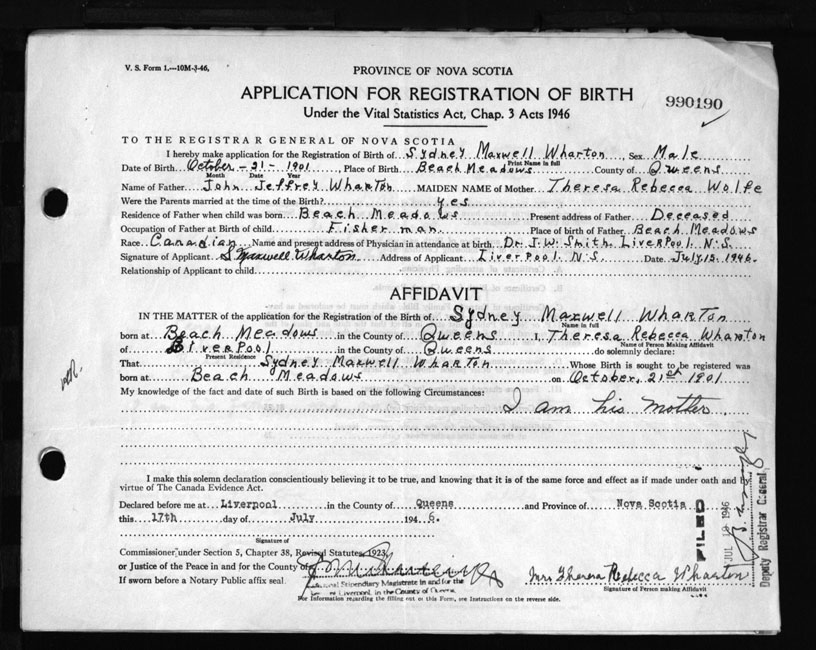 V. S. Form 1.—10M-3-46.
PROVINCE OF NOVA SCOTIA
APPLICATION FOR REGISTRATION OF BIRTH
990190
Under the Vital Statistics Act, Chap. 3 Acts 1946
TO THE REGISTRAR GENERAL OF NOVA SCOTIA
I hereby make application for the Registration of Birth of Sydney Maxwell Wharton, Sex Male
Print Name in full
Date of Birth October - 21 - 1901 Place of Birth Beach Meadows County of Queens
Month Date Year
Name of Father John Jeffrey Wharton MAIDEN NAME of Mother Theresa Rebecca Wolfe
Were the Parents married at the time of the Birth? yes
Residence of Father when child was born Beach Meadows Present address of Father Deceased
Occupation of Father at Birth of child Fisherman Place of birth of Father Beach Meadows
Race Canadian Name and present address of Physician in attendance at birth Dr. J. W. Smith Liverpool N.S.
Signature of Applicant S Maxwell Wharton Address of Applicant Liverpool N.S Date July 15. 1946.
Relationship of Applicant to child
AFFIDAVIT
IN THE MATTER of the application for the Registration of the Birth of Sydney Maxwell Wharton
Name in full
born at Beach Meadows in the County of Queens I, Theresa Rebecca Wharton
Name of Person Making Affidavit
of Liverpool in the County of Queens do solemnly declare:
Present Residence
That Sydney Maxwell Wharton Whose Birth is sought to be registered was
born at Beach Meadows on October, 21st 1901
My knowledge of the fact and date of such Birth is based on the following Circumstances:
I am his mother
I make this solemn declaration conscientiously believing it to be true, and knowing that it is of the same force and effect as if made under oath and by
virtue of The Canada Evidence Act.
Declared before me at Liverpool in the County of Queens and Province of Nova Scotia
this 17th day of July 1946.
Signature of
Commissioner, under Section 5, Chapter 38, Revised Statutes, 1923,
or Justice of the Peace in and for the County of
If sworn before a Notary Public affix seal
Stipendiary Magistrate in and for the
Liverpool, in the County of Queens
Mrs Theresa Rebecca Wharton
Signature of Person making Affidavit
For Information regarding the filling out of this Form, see Instructions on the reverse side.
FILED
JUL 1946
Deputy Registrar General